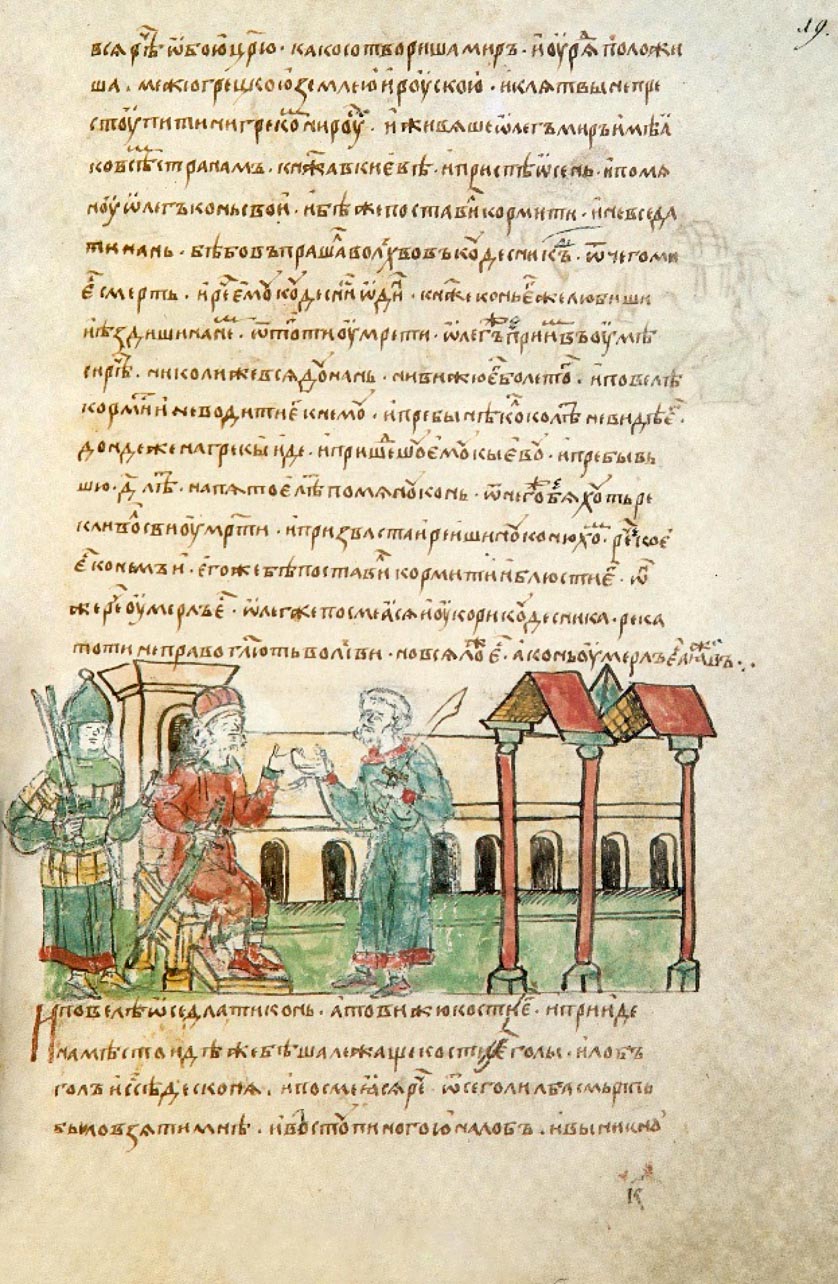 19.
всѧ рѣ҃ ѿ обою цр҃ю · како сотвориша миръ · и оурѧ положи
ша · межю грецкою землею и роускою · и клѧтвы не пре
стоупити ни греком ни роу · и живѧше ѡлегъ миръ имѣꙗ
ко всѣм странамъ · кнѧжа в киевѣ · и приспѣ ѡсень · и помѧ
ноу ѡлегъ конь свои · и бѣ же поставил кормити · и не вседа
ти нань · бѣ бо въпрашал волхвовъ коудесникъ · ѿ чего ми
ес смерть · и рече емоу коудесник ѡдин · кнѧже конь его же любиши
и ѣздиши на нем · ѿ того ти оумрети · ѡлегъ же приим въ оумѣ
си рѣ҃ · николи же всѧдоу нань · ни вижю его боле того · и повелѣ
кормити и не водити его к немоу · и пребы нѣколко лѣт не видѣ его ·
дондеже на грекы иде · и пришедшоу емоу кыевоу · и пребывь
шю · д҃ лѣт · на пѧтое лѣто помѧноу конь · ѿ него же бѧхоуть ре
кли волсви оумрети · и призва старѣишиноу конюхом · река кое
ес конь мъи · его же бѣ поставил кормити и блюсти его · ѡн
же рече оумерлъ ес · ѡлег же посмеѧсѧ и оукори коудесника · река
то ти неправо глют волъсви · но все лжа ес · а конь оумерлъ ес а ꙗ живъ ·
И повелѣ ѡседлати конь · а то вижю кости его · и прииде
на мѣсто идѣже бѣша лежаще кости его голы · и лобъ
голъ и ссѣде с конѧ · и посмеꙗсѧ рече · ѿ сего ли лба смърть
было взѧти мнѣ · и въстоупи ногою на лобъ · и выникноу
к